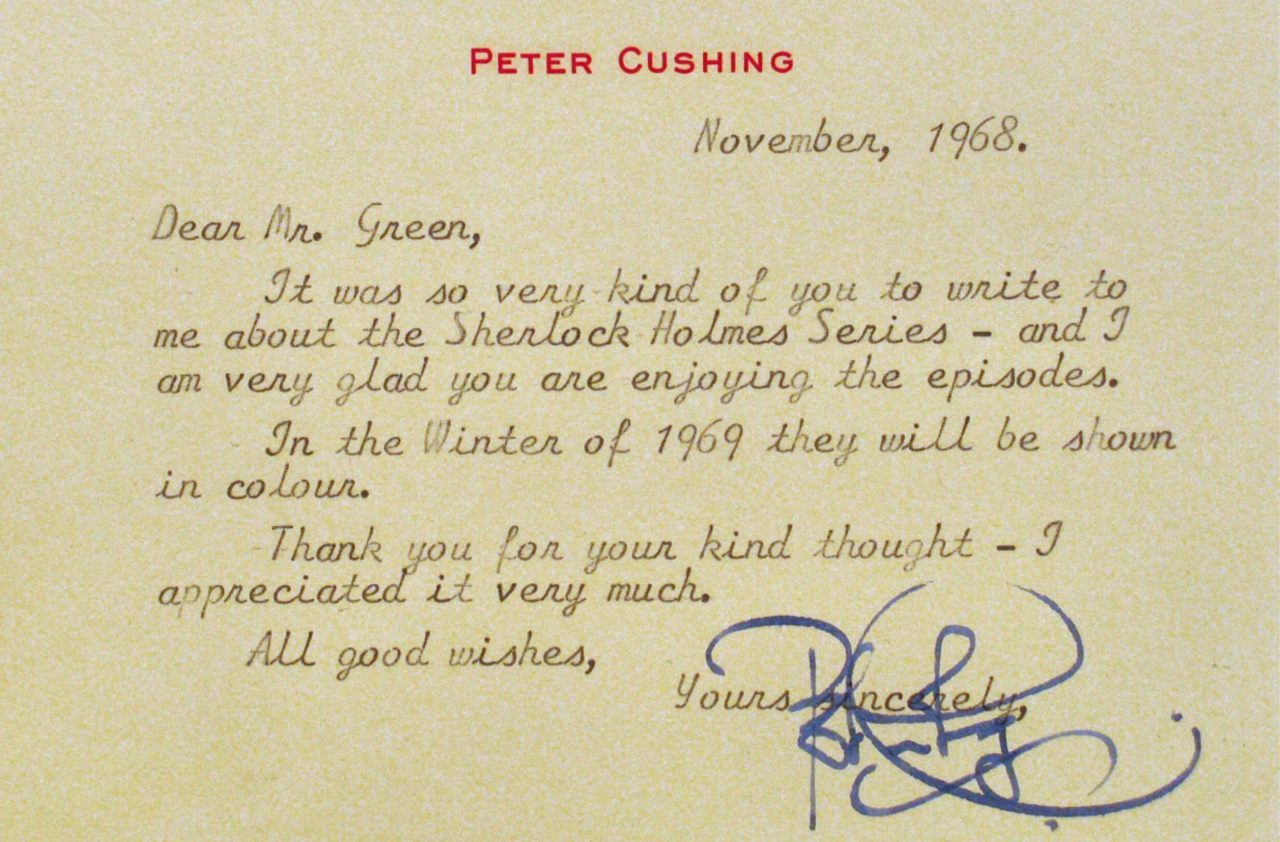 PETER CUSHING
November, 1968.
Dear Mr. Green,
It was so very kind of you to write to
me about the Sherlock Holmes Series - and I
am very glad you are enjoying the episodes.
In the Winter of 1969 they will be shown
in colour.
Thank you for your kind thought - I
appreciated it very much.
All good wishes,
Yours sincerely,
Peter Cushing